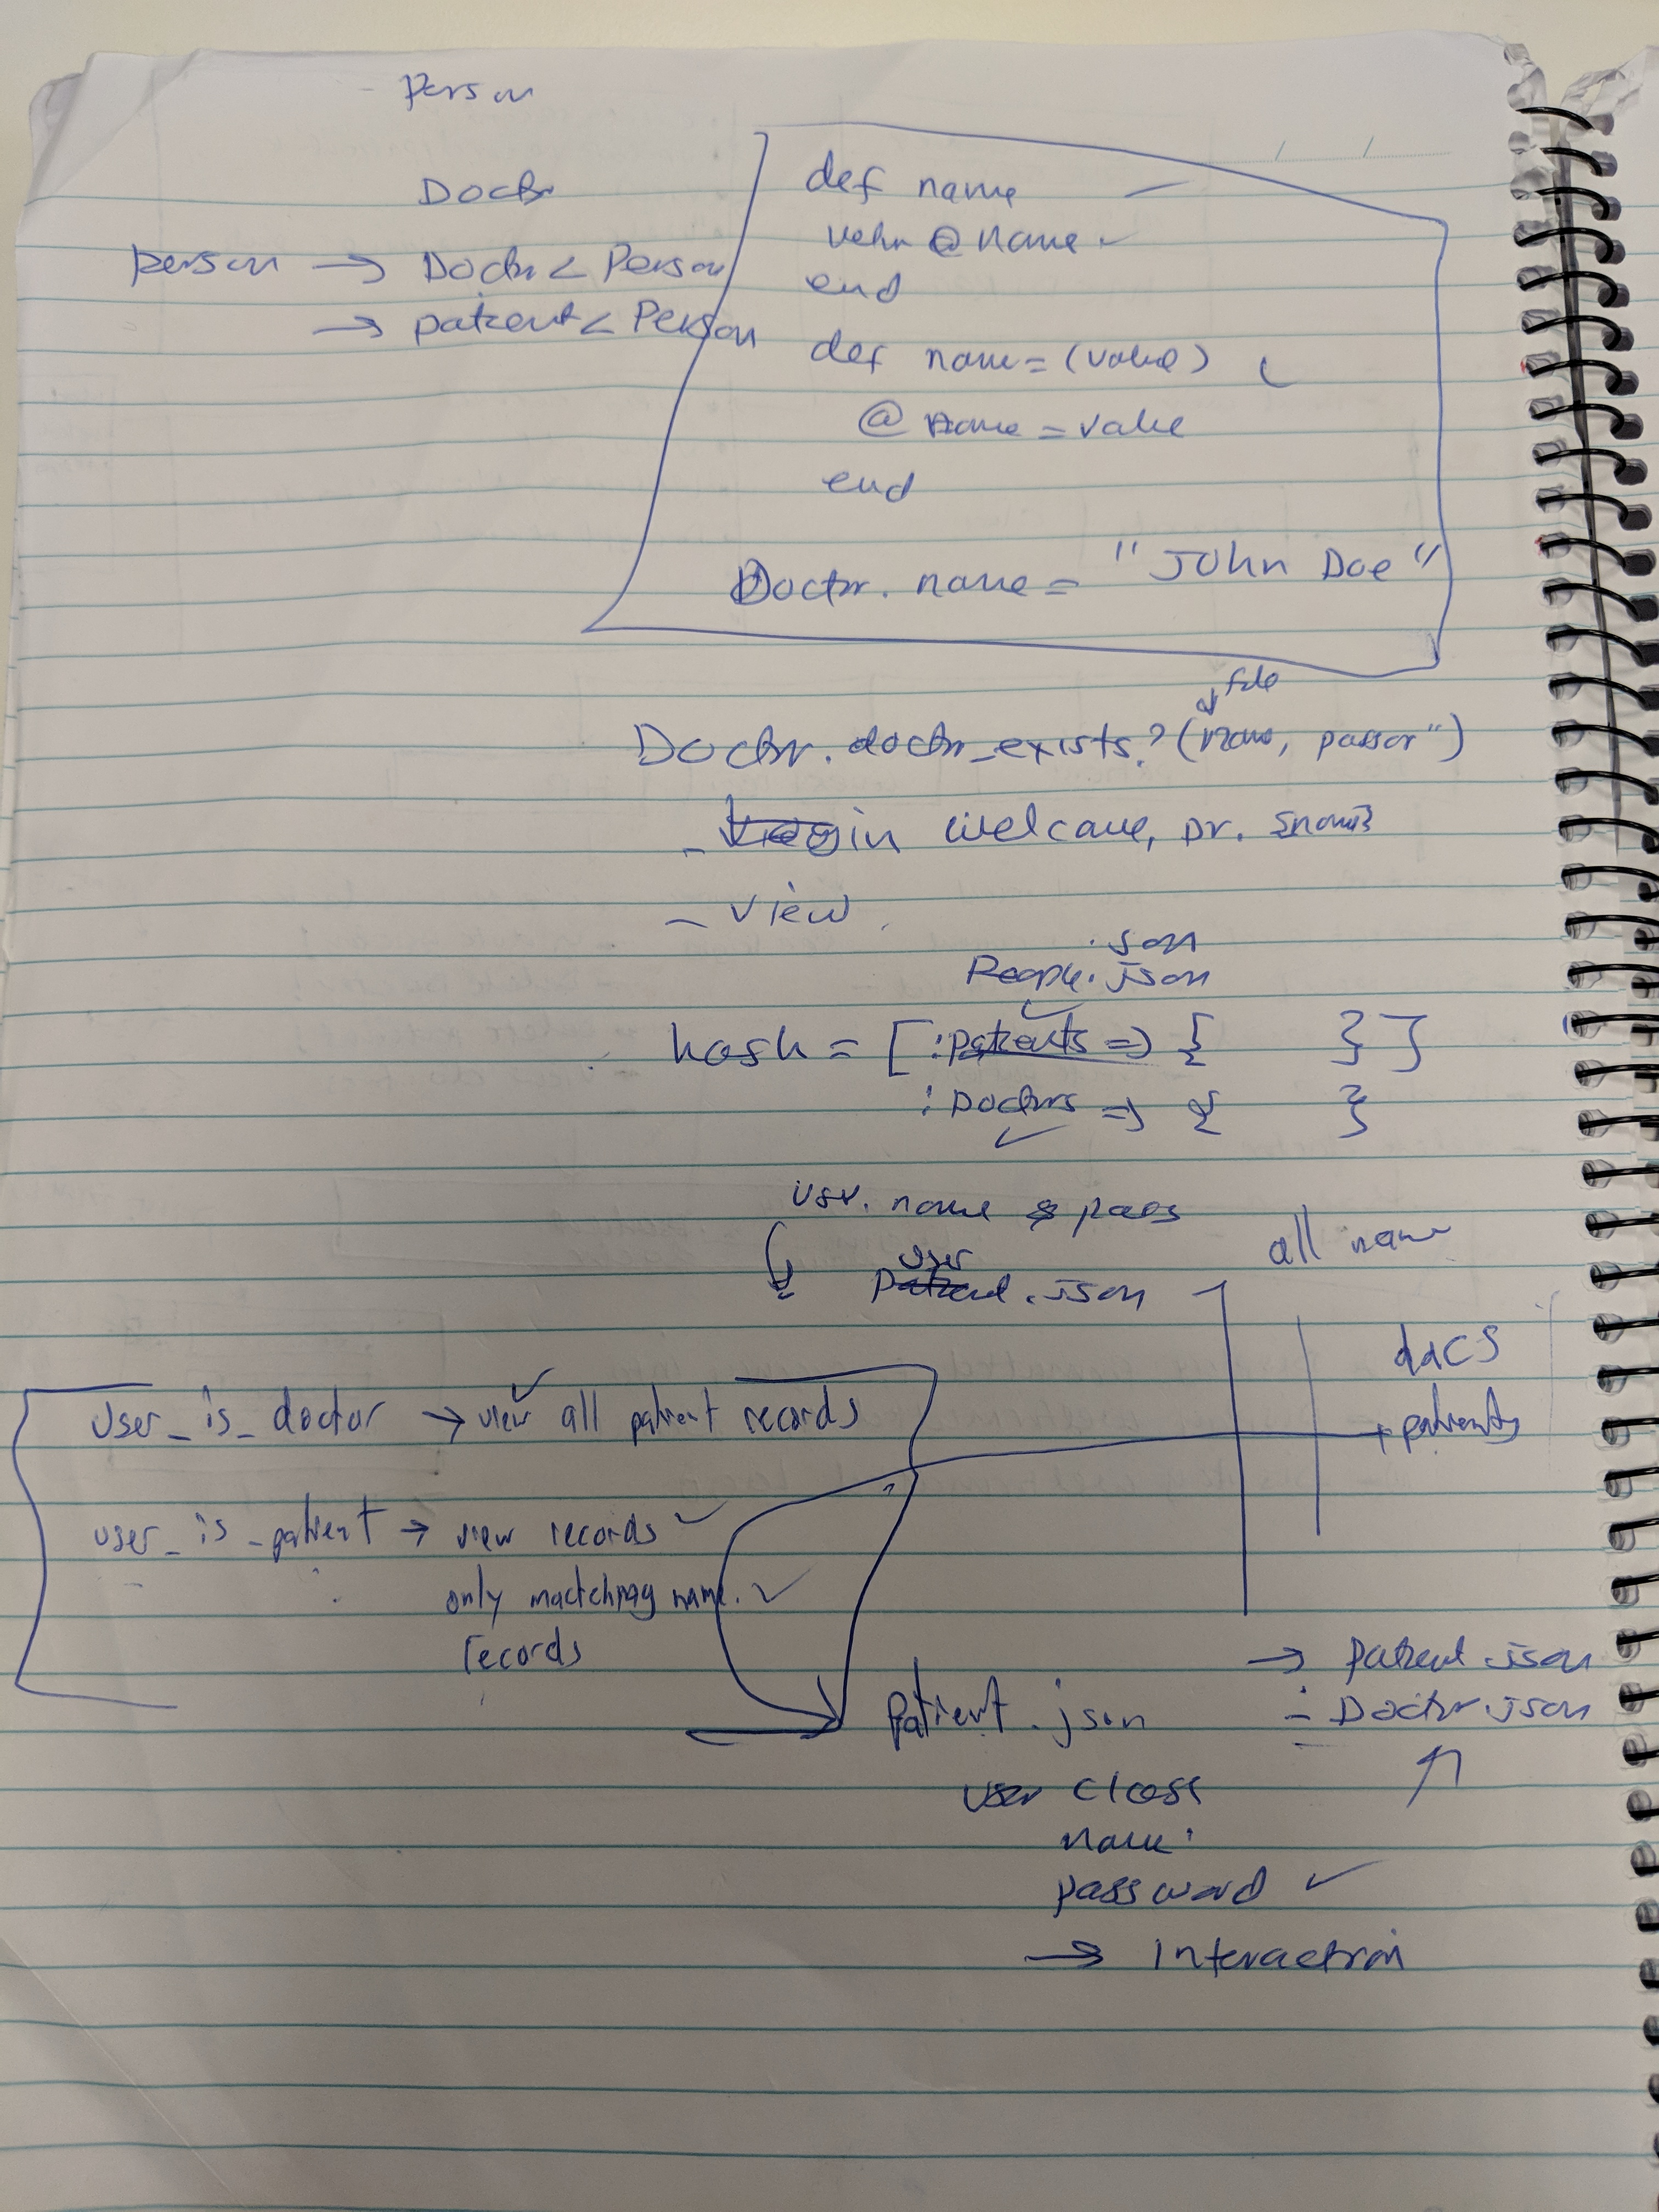 Person
Doctor
person → Doctor < Person
→ patient < Person
def name
return @name
end
def name=(value)
@name = value
end
Doctor. name = "John Doe"
Doctor. doctor_exists? (name,
welcome, Dr. {name}
- view
.json
People.json
hash = [:patients => { } ]
:Doctors => { }
usr. name & pass
all name
user
Patient.json
docs
patients
user_is_doctor → view all patient records
user_is_patient → view records
only mactching name.
records
→ patient.json
- Doctor.json
patient.json
user class
name:
password
→ Interaction